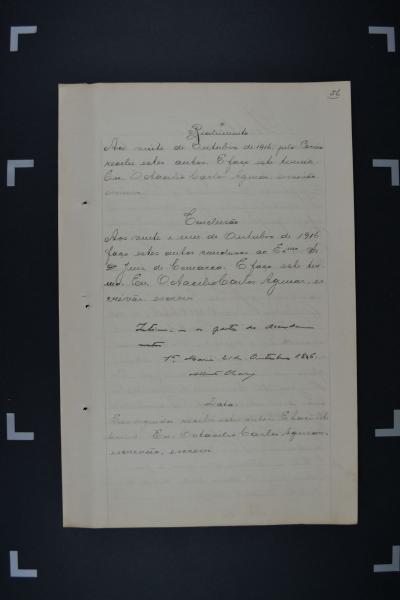 56
Recebimento
Aos vinte de Outubro de 1916, pelo
recebi estes autos. E faço este termo.
Eu Octacilio Carlos Aguiar, escrivão
escrevi.
Conclusão
Aos vinte e um de Outubro de 1916
faço estes autos conclusos ao Exmo. Dr.
Juiz de Comarca. E faço este ter-
mo. Eu, Octacilio Carlos Aguiar, es
crivão, escrevi.
as partes
Sta. Maria 21 de Outubro 1916
Data
Em seguida recebi estes autos. E
Eu Octacilio Carlos Aguiar,
escrivão, escrevi